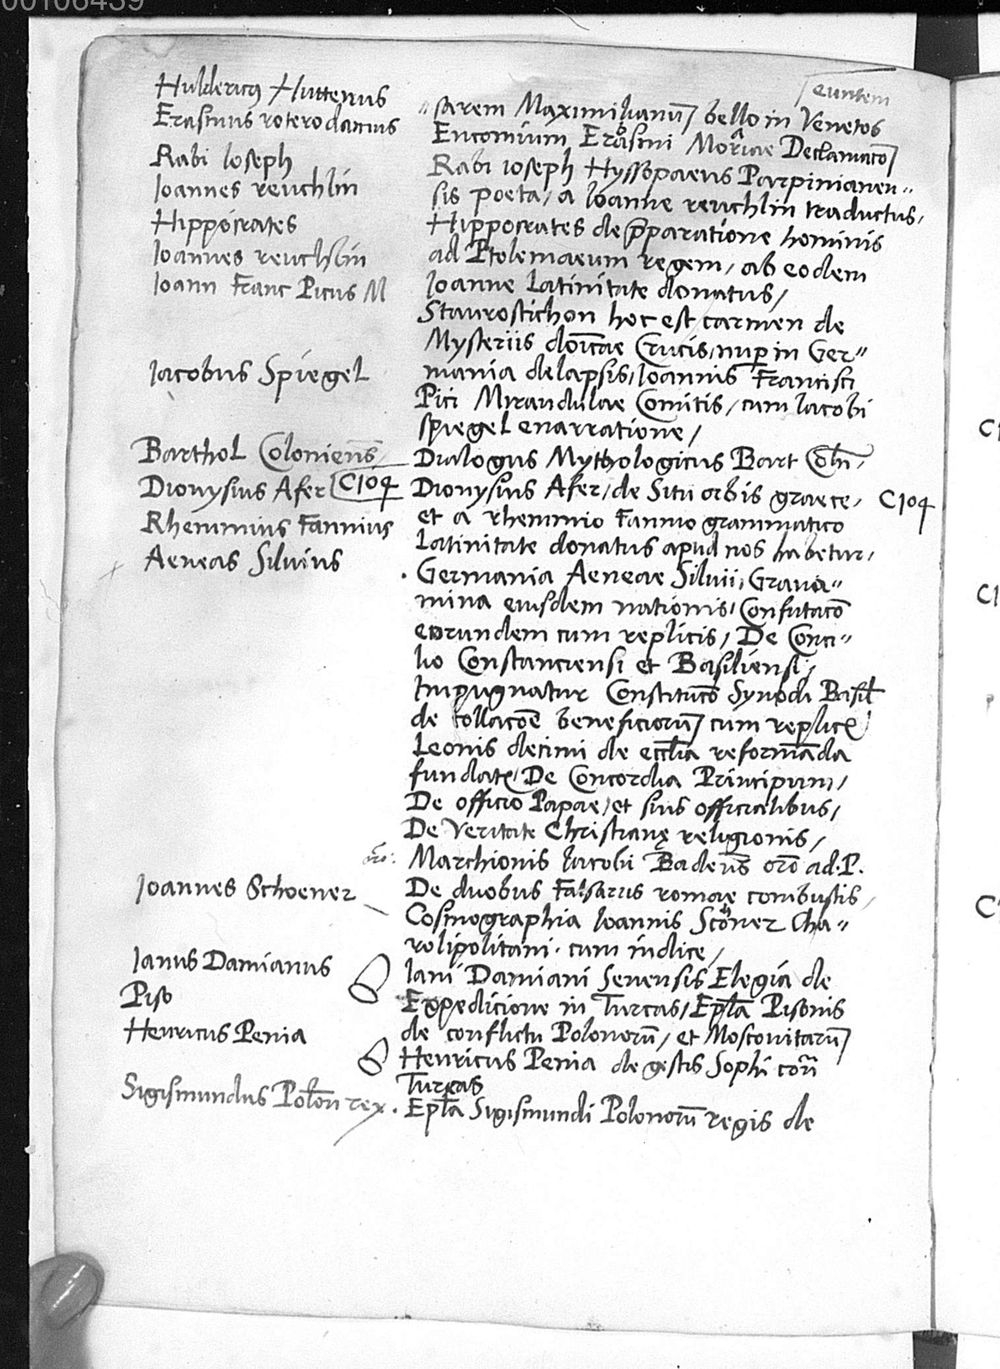 00106439
Huldericꝰ Huttenus
Erasmus roterodamus
Rabi Ioseph
Ioannes reuchlin
Hippócrates
Ioannes reuchlin
Ioann Franc Picus M
Iacobus Spiegel
Barthol Coloniens̄
Dionysius Afer C104
Rhemmius Fannius
Aeneas Siluius
Ioannes Schoener
Ianus Damianus
Piso
Henricus Penia
Sigismundus Polon̄ rex
euntem
sarem Maximilianū bello in Venetos
Encomium Erasmi Moriae Declamatō
Rabi ioseph Hyssopaeus Parpinianen"
sis poeta, a Ioanne reuchlin traductus,
Hippocrates de p̄paratione hominis
ad Ptolemaeum regem, ab eodem
Ioanne Latinitate donatus,
Staurostichon hoc est carmen de
Mysteriis dōicae Crucis, nup in Ger"
mania delapsis, Ioannis Francisci
Pici Mirandulae Comitis, cum Iacobi
spiegel enarratione,
Dialogus Mythologicus Bart Coln̄,
Dionysius Afer, de Situ orbis graece, C104
et a rhemmio Fannio grammatico
Latinitate donatus apud nos habetur,
. Germania Aeneae Siluii, Graua"
mina eiusdem nationis, Confutacō
eorundem cum replicis, De Conci"
lio Constanciensi et Basiliensi,
Impugnatur Constitucō Synodi Basil
de collacōe beneficiorū cum replic
Leonis decimi de eccl̄ia reformāda
fundat, De Concordia Principum,
De officio Papae, et suis officialibus,
De Veritate Christianę religionis,
Marchionis Iacobi Badeñ orō ad .P.
De duobus Falsariis romae combustis,
Cosmographia Ioannis Scöner Cha"
rolipolitani. cum indice,
Iani Damiani Senensis Elegia de
Expedicione in Turcas, Ep̄la Pisonis
de conflictu Polonorū, et Moscouitarū
Henricus Penia de gestis Sophi con̄
Turcas
. Ep̄la Sigismundi Polonorū regis de